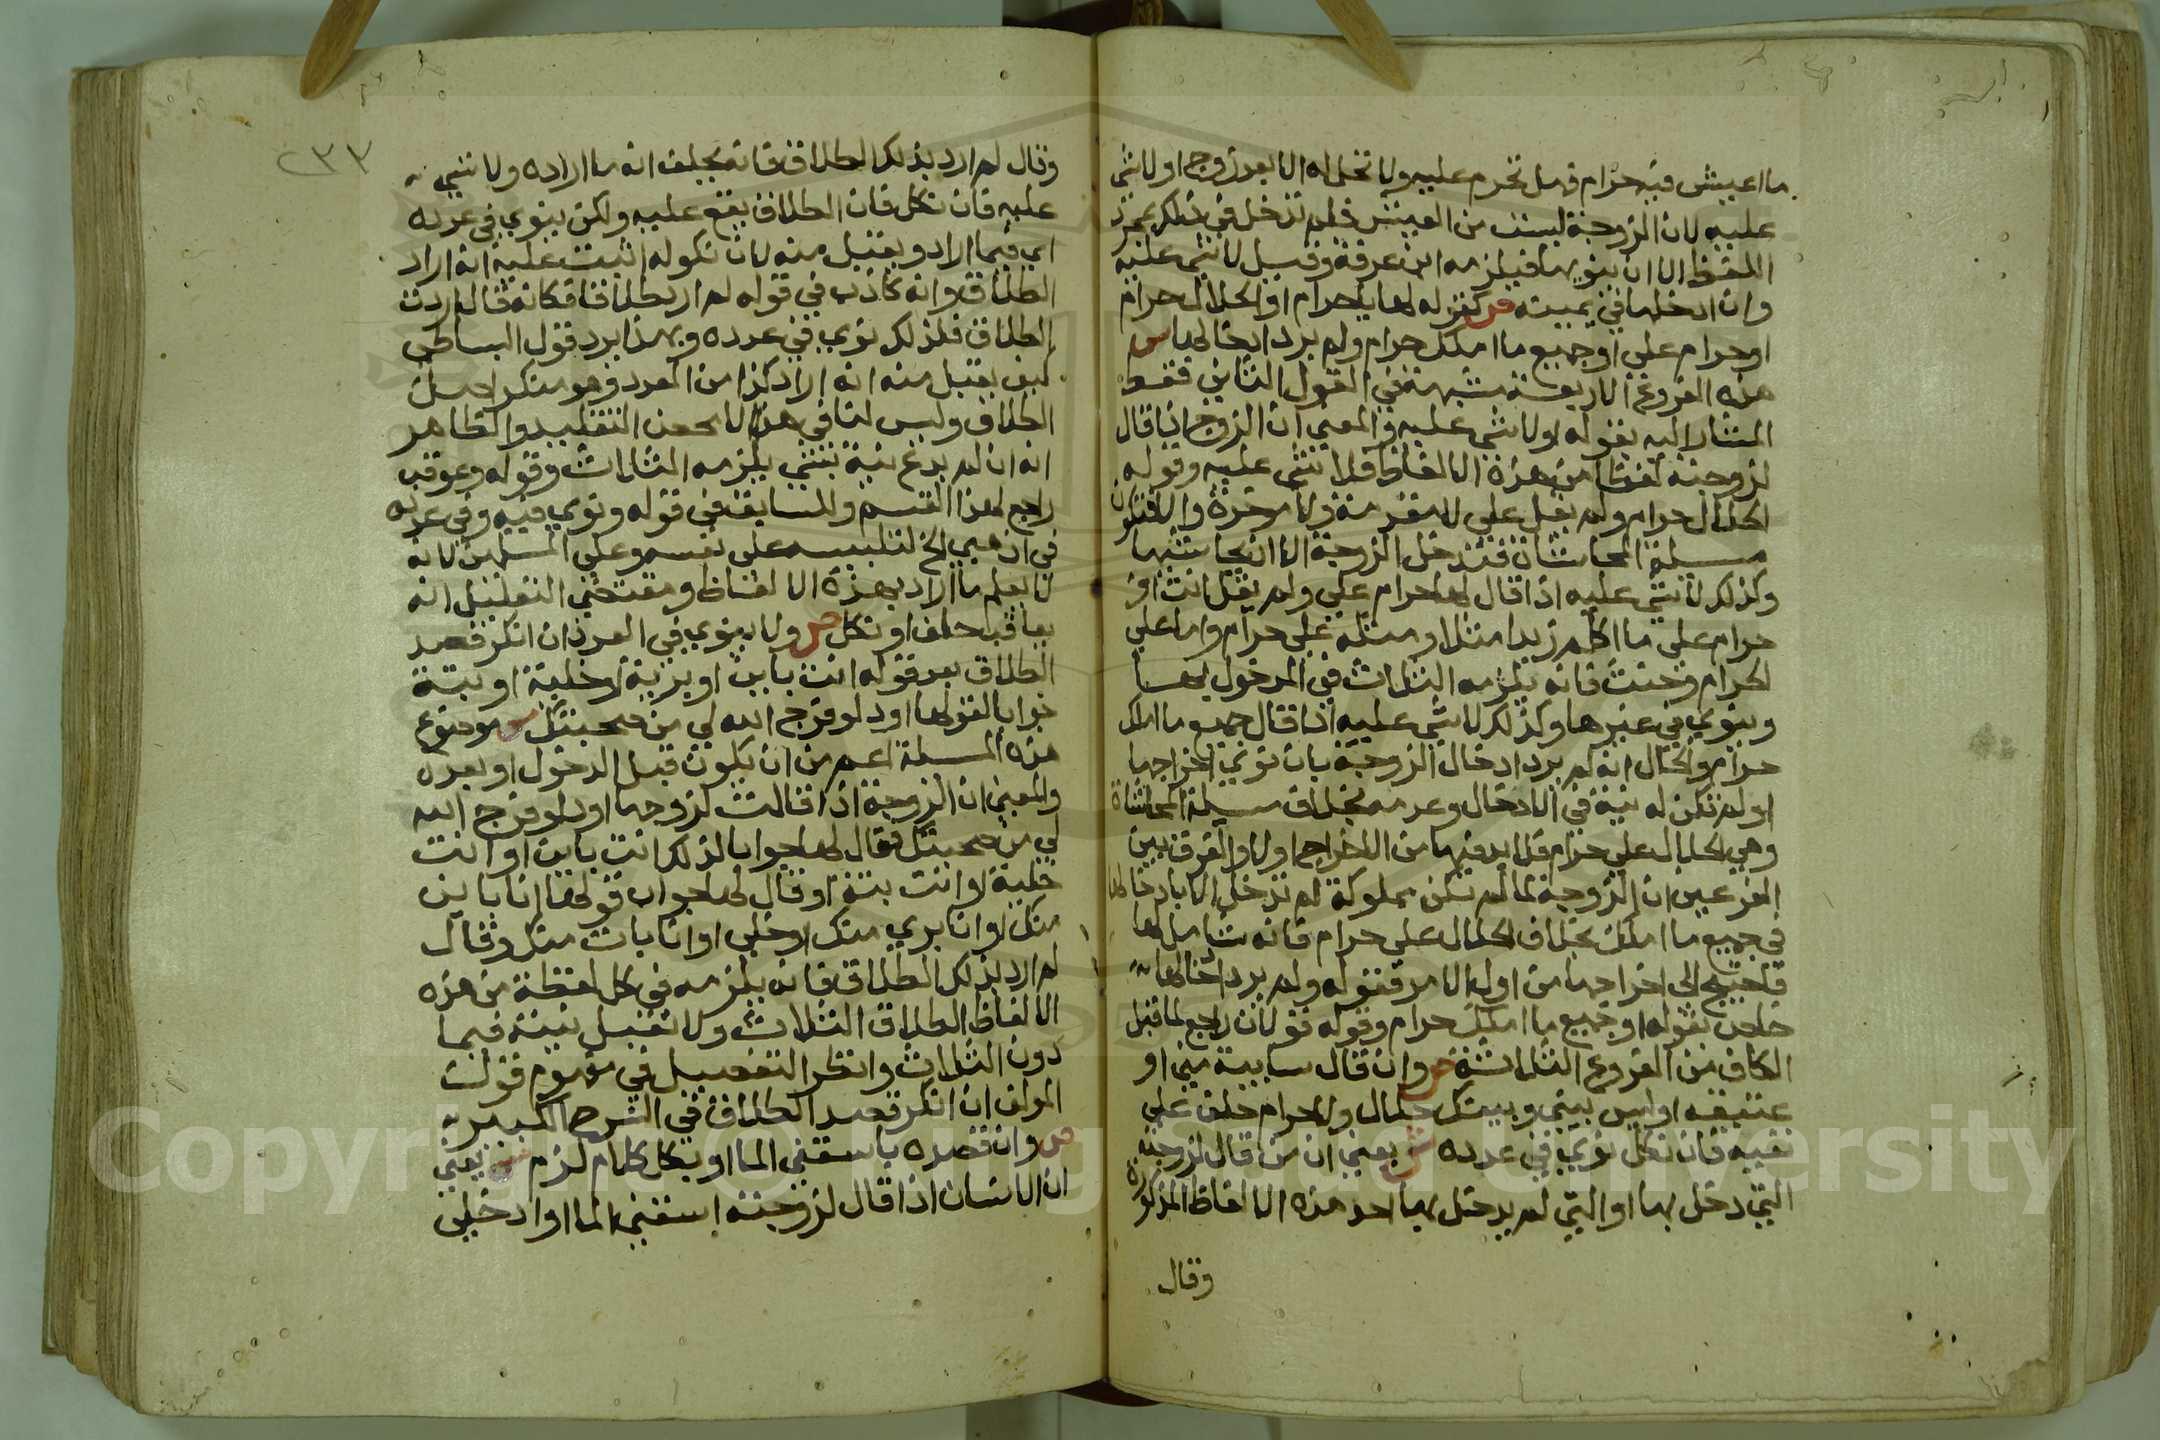 ما اعيش فيه حرام فهل تحرم عليه ولا تحل له الا بعد زوج او لا شي
عليه لان الزوجة ليست من العيش فلم تدخل في ذلك بمجرد
اللفظ الا ان ينويها فيلزمه ابن عرفة وقيل لا شي عليه
وان ادخلها في يمينه ص كقوله لها يا حرام او الحلال حرام
او حرام علي او جميع ما املك حرام ولم يرد ادخالها ش
هذه الفروع الاربعة مشبهة في القول الثاني فقط
المشار اليه بقوله او لا شي عليه والمعني ان الزوج اذا قال
لزوجته لفظا من هذه الالفاظ فلا شي عليه وقوله
الحلال حرام ولم يقل علي لا مقدمة ولا موخرة والا فتكون
مسيلة المحاشاة فتدخل الزوجة الا ان يحاشيها
وكذلك لا شي عليه اذا قال لها حرام علي ولم يقل انت او
حرام علي ما اكلم زيدا مثلا ومثله علي حرام واما علي
الحرام وحنث فانه يلزمه الثلاث في المدخول بها
وينوي في غيرها وكذلك لا شي عليه اذا قال جميع ما املك
حرام والحال انه لم يرد ادخال الزوجة بان نوي اخراجها
او لم تكن له نية في الادخال وعدمه بخلاف مسيلة المحاشاة
وهي الحلال علي حرام فلا بد فيها من الاخراج اولا والفرق بين
الفرعين ان الزوجة لما لم تكن مملوكة لم تدخل الا بادخالها
في جميع ما املك بخلاف الحلال علي حرام فانه شامل لها
فاحتيج الي اخراجها من اول الامر فقوله ولم يرد ادخالها
خاص بقوله او جميع ما املك حرام وقوله قولان راجع لما قبل
الكاف من الفروع الثلاثة ص وان قال سايبة مني او
عتيقة او ليس بيني وبينك حلال ولا حرام حلف علي
نفيه فان نكل نوي في عدده ش يعني ان من قال لزوجته
التي دخل بها او التي لم يدخل بها احد هذه الالفاظ المذكورة
وقال
٢٣٣
وقال لم ارد بذلك الطلاق فانه يحلف انه ما اراده ولا شي
عليه فان نكل فان الطلاق يقع عليه ولكن ينوي في عدده
اي فيما اراد ويقبل منه لان نكوله اثبت عليه انه اراد
الطلاق وانه كاذب في قوله لم ارد طلاقا فكانه قال اردت
الطلاق فلذلك نوي في عدده وبهذا يرد قول البساطي
كيف يقبل منه انه اراد كذا من العدد وهو منكر اصل
الطلاق وليس لنا في هذا الا محض التقليد والظاهر
انه ان لم يدع نية بشي يلزمه الثلاث وقوله وعوقب
راجع لهذا القسم وللسابق في قوله ونوي فيه وفي عدده
في اذهبي الخ لتلبيسه علي نفسه وعلي المسلمين لانه
لا يعلم ما اراد بهذه الالفاظ ومقتضي التعليل انه
يعاقب حلف او نكل ص ولا ينوي في العدد ان انكر قصد
الطلاق بعد قوله انت باين او برية او خلية او بتة
جوابا لقولها اود لو فرج الله لي من صحبتك ش موضوع
هذه المسيلة اعم من ان يكون قبل الدخول او بعده
والمعني ان الزوجة اذا قالت لزوجها اود لو فرج الله
لي من صحبتك فقال لها جوابا لذلك انت باين او انت
خلية او انت بتة او قال لها جواب قولها انا باين
منك او انا بري منك او خلي او انا بات منك وقال
لم ارد بذلك الطلاق فانه يلزمه في كل لفظة من هذه
الالفاظ الطلاق الثلاث ولا تقبل نيته فيما
دون الثلاث وانظر التفصيل في مفهوم قول
المولف ان انكر قصد الطلاق في الشرح الكبير
ص وان قصده باسقني الما او بكل كلام لزم ش يعني
ان الانسان اذا قال لزوجته اسقني الما او ادخلي